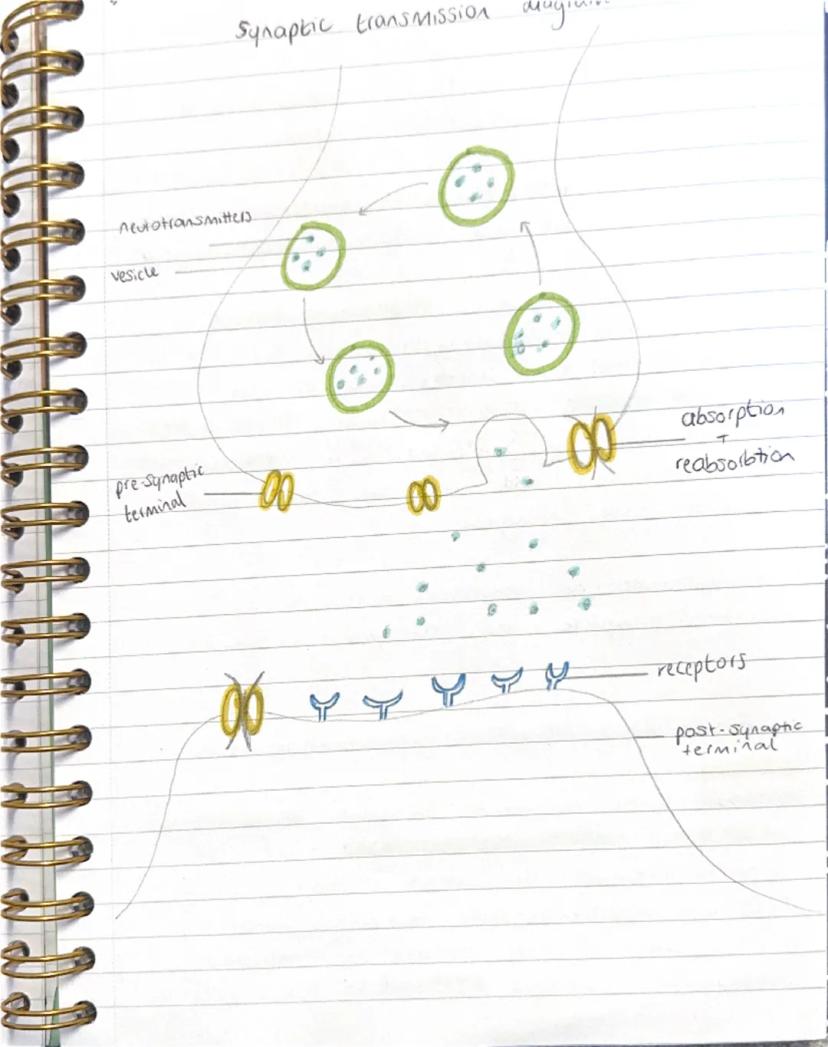 Synaptic transmission
neurotransmitters
vesicle
absorption
+
reabsorbtion
pre-synaptic
terminal
receptors
post-synaptic
terminal